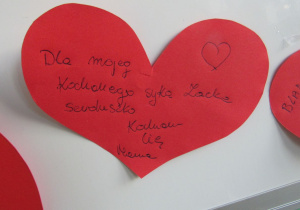 Dla mojego
Kochanego syka Lacka
serduszko
Kocham
Cię
Mama